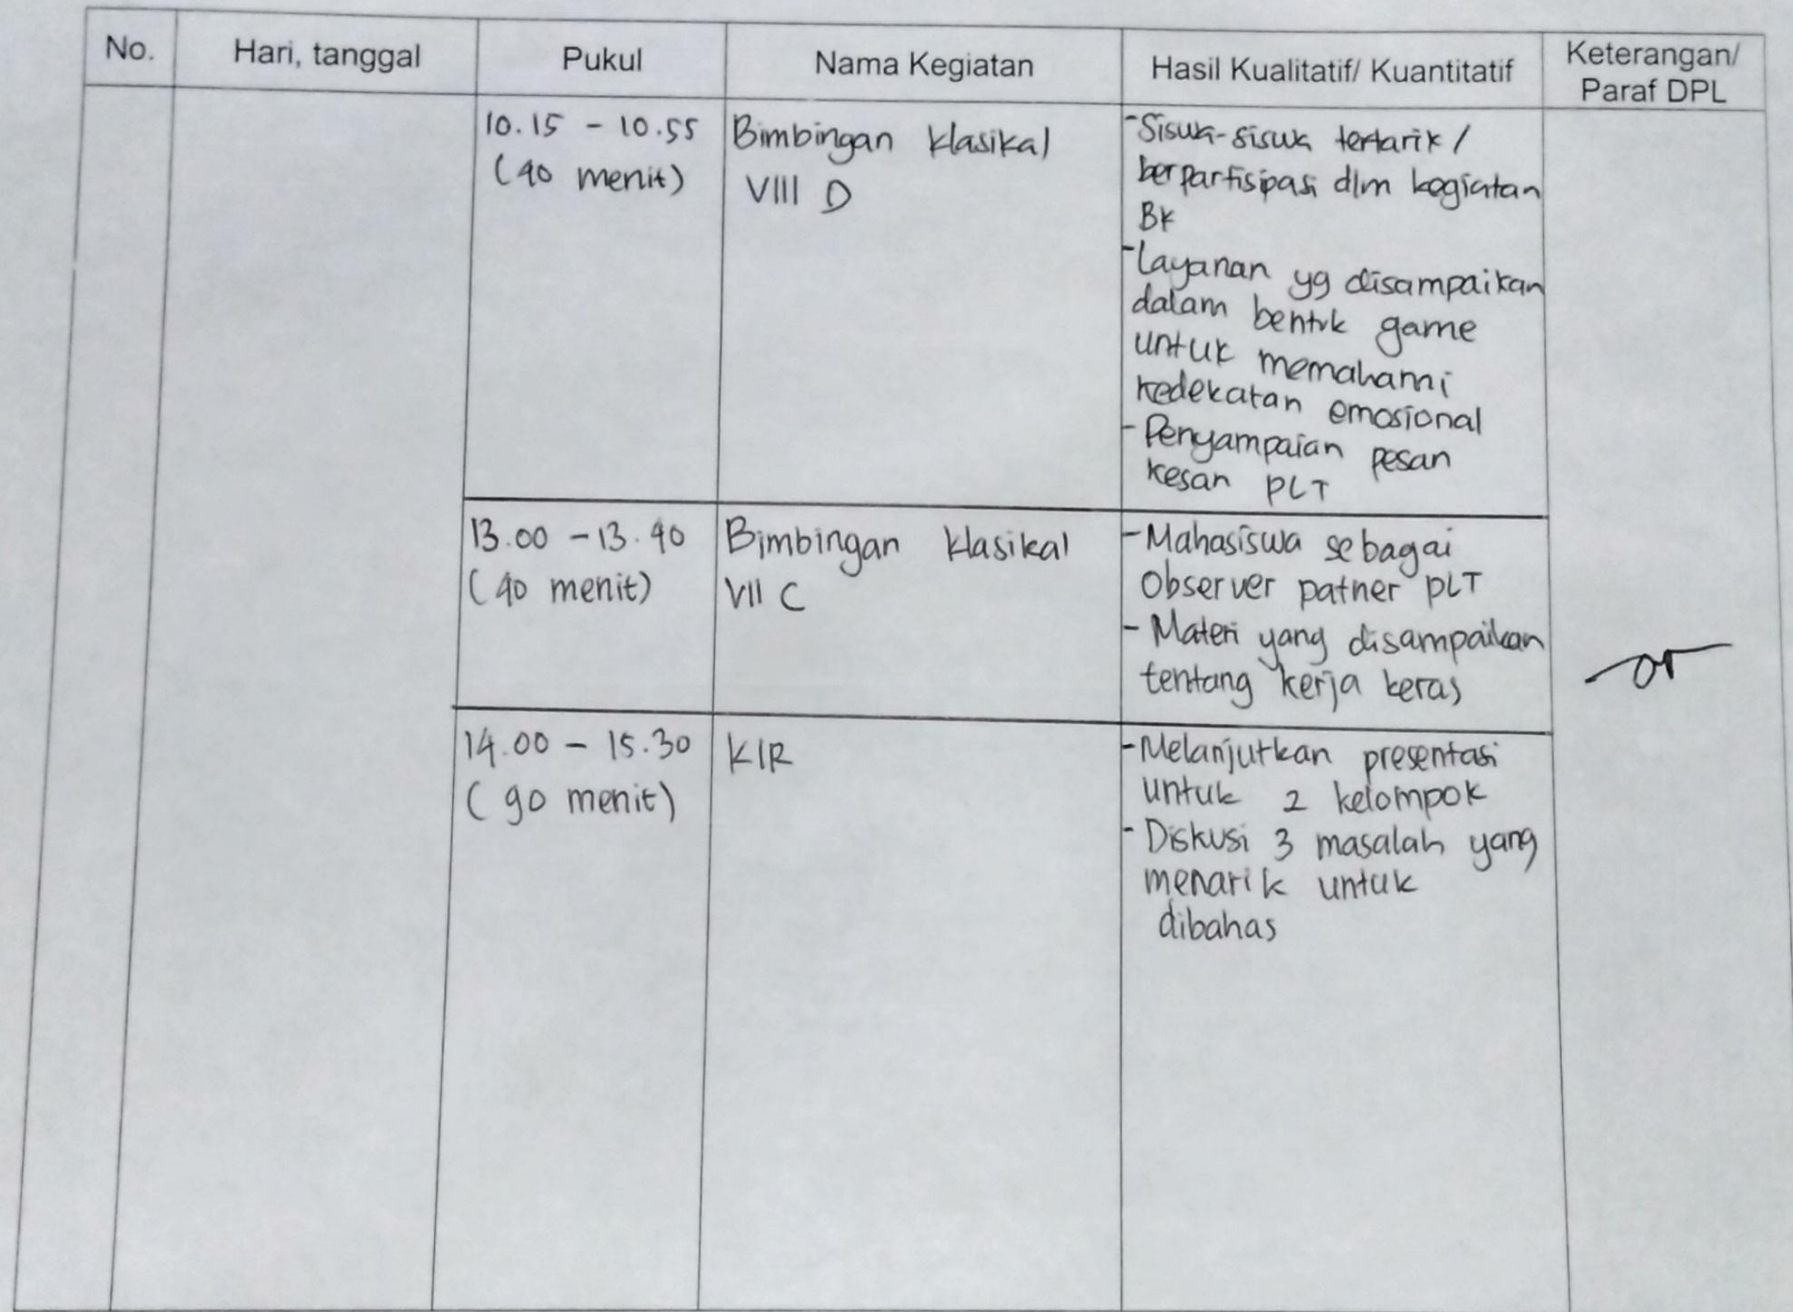 No.
Hari, tanggal
Pukul
Nama Kegiatan
Hasil Kualitatif/ Kuantitatif
Keterangan/
Paraf DPL
10.15 - 10.55
(40 menit)
Bimbingan klasikal
VIII D
- Siswa-siswa tertarik /
berpartisipasi dlm kegiatan
BK
- Layanan yg disampaikan
dalam bentuk game
untuk memahami
kedekatan emosional
- Penyampaian pesan
kesan PLT
13.00 - 13.40
(40 menit)
Bimbingan klasikal
VII C
- Mahasiswa sebagai
Observer patner PLT
- Materi yang disampaikan
tentang kerja keras
14.00 - 15.30
(90 menit)
KIR
- Melanjutkan presentasi
untuk 2 kelompok
- Diskusi 3 masalah yang
menarik untuk
dibahas